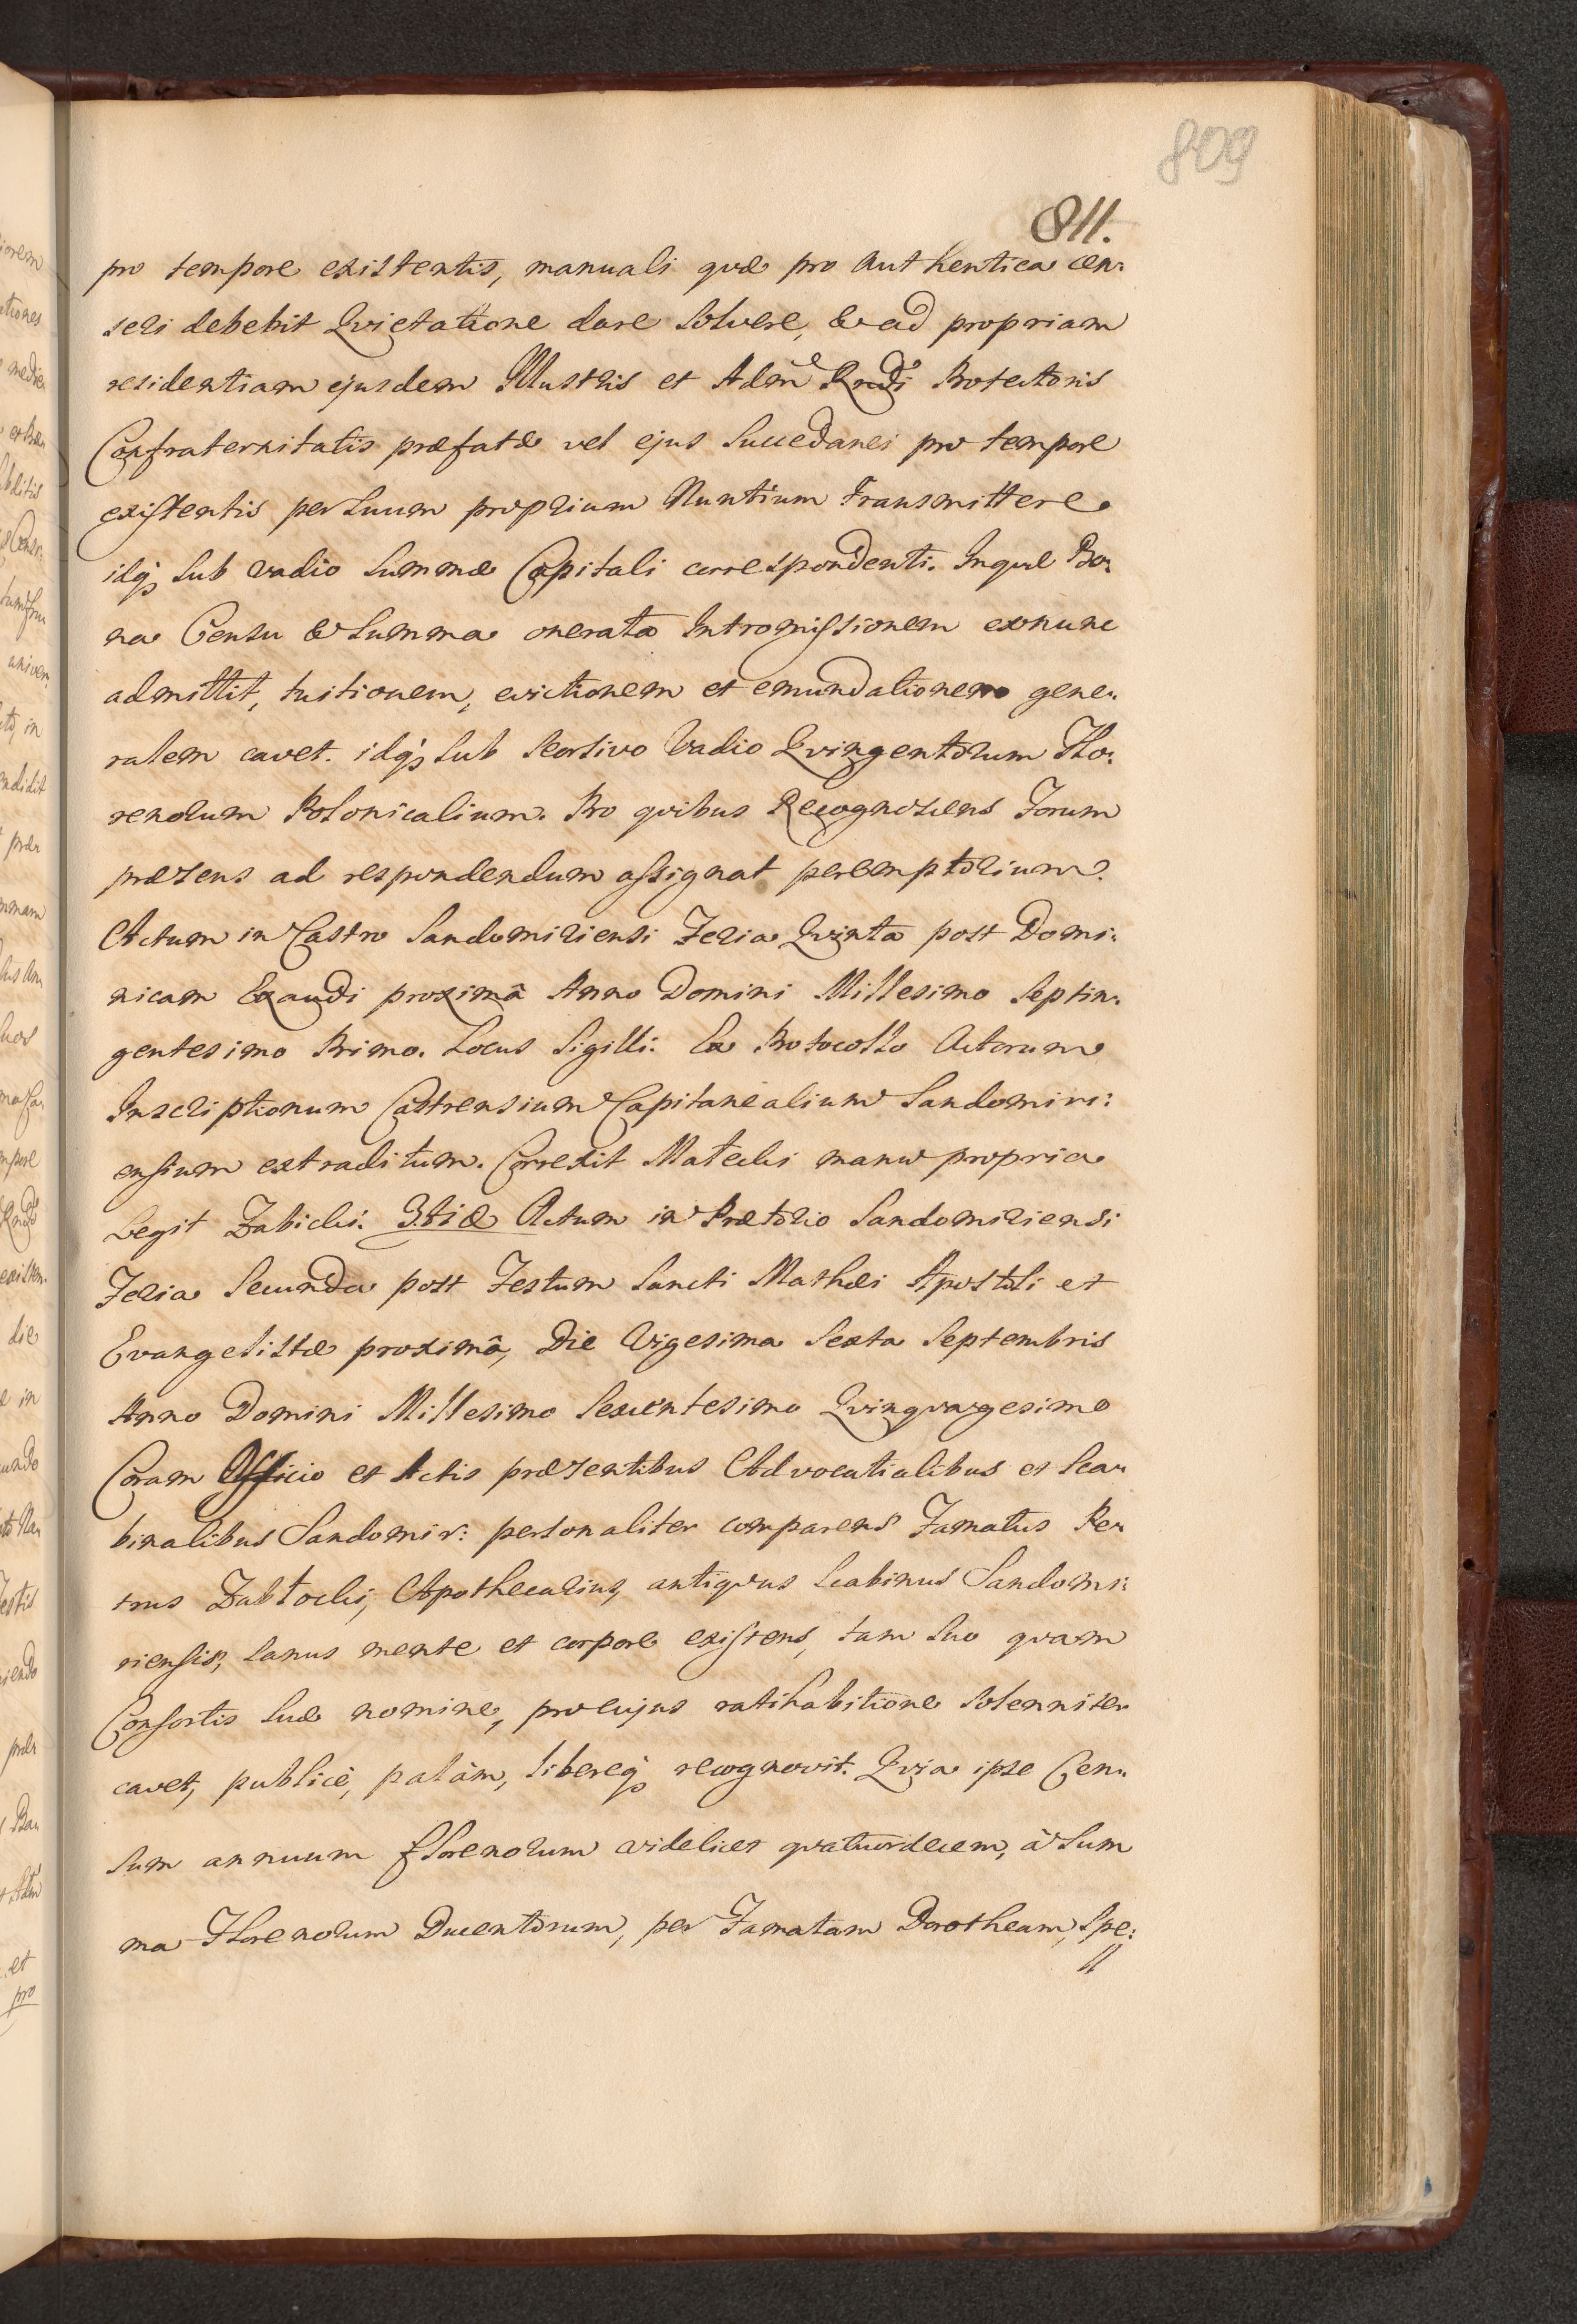 809
811.
pro tempore existentis, manuali quæ pro Authentica cen:
seri debebit Qvietatione dare solvere, & ad propriam
residentiam ejusdem Illustris et Adm Rndi Protectoris
Confraternitatis præfatæ vel ejus Succedanei pro tempore
existentis per Suum proprium Nuntium Transmittere
idq; sub vadio Summæ Capitali correspondenti. Inquæ Bo:
na Censu & Summa onerata Intromissionem exnunc
admittit, tuitionem, evictionem et emundationem gene:
ralem cavet. idq; sub seorsivo Vadio Qvingentorum Flo:
renorum Polonicalium. Pro qvibus Recognoscens Forum
præsens ad respondendum assignat peremptorium.
Actum in Castro Sandomiriensi Feria Qvinta post Domi:
nicam Exaudi proximâ Anno Domini Millesimo Septin:
gentesimo Primo. Locus Sigilli: Ex Protocollo Actorum
Inscriptionum Castrensium Capitanealium Sandomiri:
ensium extraditum. Correxit Matecki manu propria
Legit Zabicki. 3tiæ Actum in Prætorio Sandomiriensi
Feria Secunda post Festum Sancti Mathæi Apostoli et
Evangelistæ proximâ, Die Vigesima Sexta Septembris
Anno Domini Millesimo Sexcentesimo Qvinqvagesimo
Coram Officio et Actis præsentibus Advocatialibus et Sca:
binalibus Sandomir: personaliter comparens Famatus Pe:
trus Apothecarius, antiqvus Scabinus Sandomi:
riensis, sanus mente et corpore existens, tam suo qvam
Consortis suæ nomine, pro cujus ratihabitione solenniter
cavet, publicè, palàm, libereq; recognovit. Qvia ipse Cen:
sum annuum florenorum videlicet qvatuordecem, à Sum
ma Florenorum Ducentorum, per Famatam Dorotheam, Spe: